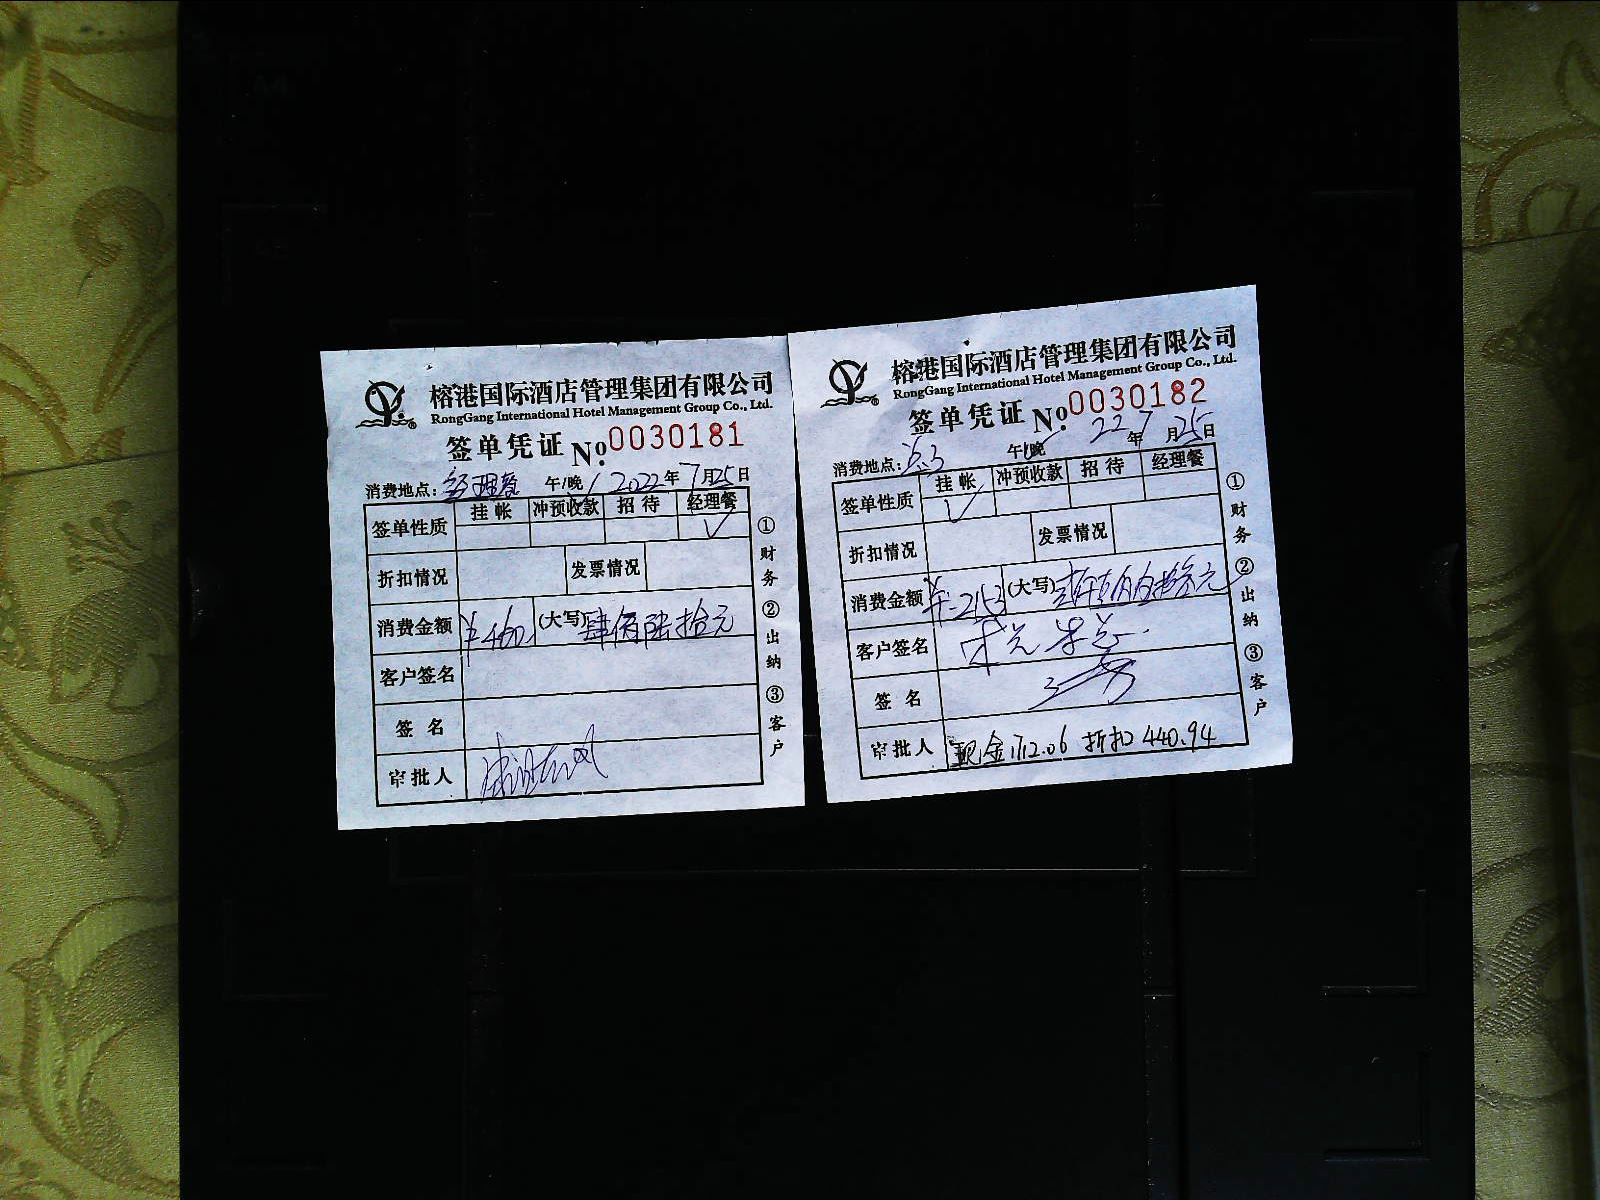 榕港国际酒店管理集团有限公司
RongGang International Hotel Management Group Co., Ltd.
签单凭证 No.0030181
消费地点: 经理餐 午/晚 2022年7月25日
签单性质 挂帐 冲预收款 招待 经理餐
✓
折扣情况 发票情况
消费金额 ¥460 (大写) 肆佰陆拾元
客户签名
签名
审批人
①财务 ②出纳 ③客户
榕港国际酒店管理集团有限公司
RongGang International Hotel Management Group Co., Ltd.
签单凭证 No.0030182
消费地点: 午/晚 22年7月25日
签单性质 挂帐 冲预收款 招待 经理餐
✓
折扣情况 发票情况
消费金额 ¥2153 (大写)
客户签名
签名
审批人 现金1712.06 折扣440.94
①财务 ②出纳 ③客户